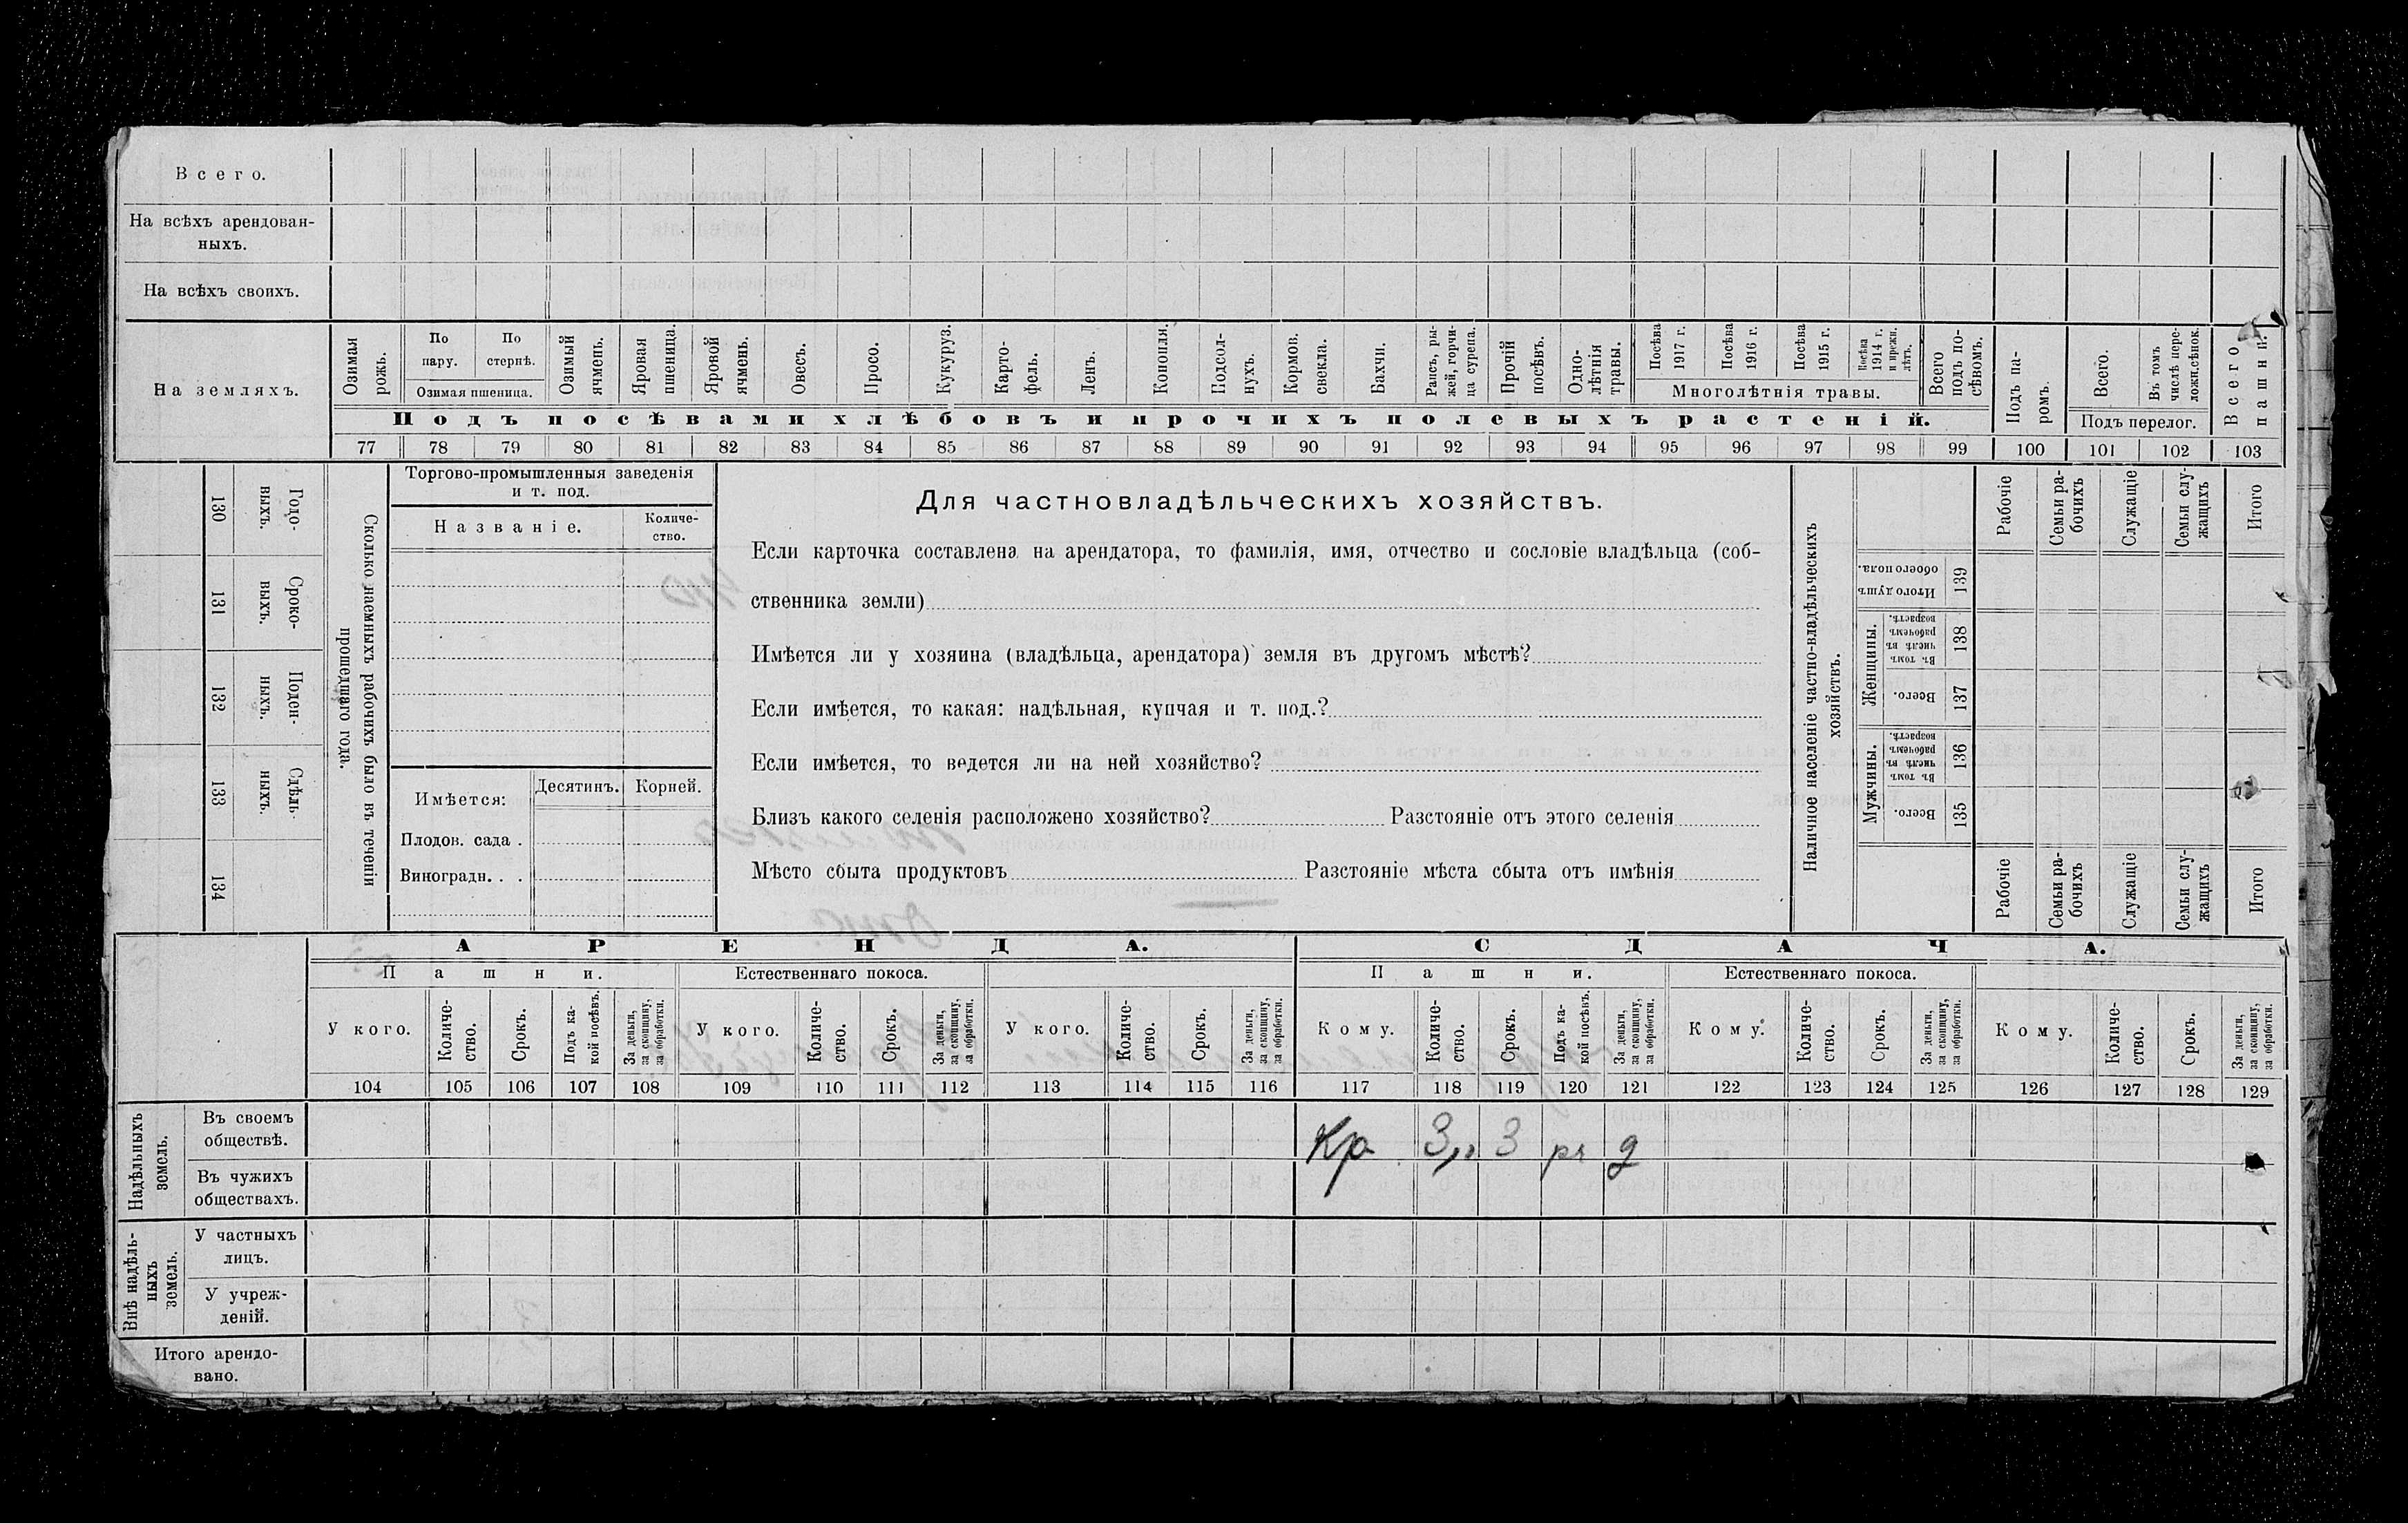 Всего.
На всѣхъ арендован-
ныхъ.
На всѣхъ своихъ.
На земляхъ.
Озимая рожь.
По пару.
По стернѣ.
Озимая пшеница.
Озимый ячмень.
Яровая пшеница.
Яровой ячмень.
Овесъ.
Просо.
Кукуруз.
Карто-
фель.
Ленъ.
Конопля.
Подсол-
нухъ.
Кормов.
свекла.
Бахчи.
Рапсъ, ры-
жей, горчи-
ца сурепа.
Прочій посѣвъ.
Одно-
лѣтнія травы.
Посѣва 1917 г.
Посѣва 1916 г.
Посѣва 1915 г.
Посѣва 1914 г. и прежн. лѣтъ.
Многолѣтнія травы.
Всего подъ по-
сѣвомъ.
Подъ па-
ромъ.
Всего.
Въ томъ числѣ пере-
ложн.сѣнок.
Подъ перелог.
Всего пашни.
Подъ посѣвами хлѣбовъ и прочихъ полевыхъ растеній.
77 78 79 80 81 82 83 84 85 86 87 88 89 90 91 92 93 94 95 96 97 98 99 100 101 102 103
130 Годо-
выхъ.
131 Сроко-
выхъ.
132 Поден-
ныхъ.
133 Сдѣль-
ныхъ.
134
Сколько наемныхъ рабочихъ было въ теченіи
прошедшаго года.
Торгово-промышленныя заведенія
и т. под.
Названіе.
Количе-
ство.
Имѣется:
Десятинъ.
Корней.
Плодов. сада .
Виноградн. . .
Для частновладѣльческихъ хозяйствъ.
Если карточка составлена на арендатора, то фамилія, имя, отчество и сословіе владѣльца (соб-
ственника земли)
Имѣется ли у хозяина (владѣльца, арендатора) земля въ другомъ мѣстѣ?
Если имѣется, то какая: надѣльная, купчая и т. под.?
Если имѣется, то ведется ли на ней хозяйство?
Близъ какого селенія расположено хозяйство? Разстояніе отъ этого селенія
Мѣсто сбыта продуктовъ Разстояніе мѣста сбыта отъ имѣнія
Наличное населеніе частно-владѣльческихъ
хозяйствъ.
Рабочіе
Семьи ра-
бочихъ
Служащіе
Семьи слу-
жащихъ
Итого
Итого душъ обоего пола. 139
Женщины.
Въ томъ числѣ въ рабочемъ возрастѣ. 138
Всего. 137
Мужчины.
Въ томъ числѣ въ рабочемъ возрастѣ. 136
Всего. 135
Рабочіе
Семьи ра-
бочихъ
Служащіе
Семьи слу-
жащихъ
Итого
АРЕНДА.
СДАЧА.
Пашни.
Естественнаго покоса.
Пашни.
Естественнаго покоса.
У кого.
Количе-
ство.
Срокъ.
Подъ ка-
кой посѣвъ.
За деньги,
за скопщину,
за обработки.
У кого.
Количе-
ство.
Срокъ.
За деньги,
за скопщину,
за обработки.
У кого.
Количе-
ство.
Срокъ.
За деньги,
за скопщину,
за обработки.
Кому.
Количе-
ство.
Срокъ.
Подъ ка-
кой посѣвъ.
За деньги,
за скопщину,
за обработки.
Кому.
Количе-
ство.
Срокъ.
За деньги,
за скопщину,
за обработки.
Кому.
Количе-
ство.
Срокъ.
За деньги,
за скопщину,
за обработки.
104 105 106 107 108 109 110 111 112 113 114 115 116 117 118 119 120 121 122 123 124 125 126 127 128 129
Надѣльныхъ
земель.
Въ своемъ
обществѣ.
Кр 3 д
Въ чужихъ
обществахъ.
Внѣ надѣль-
ныхъ
земель.
У частныхъ
лицъ.
У учреж-
деній.
Итого арендо-
вано.